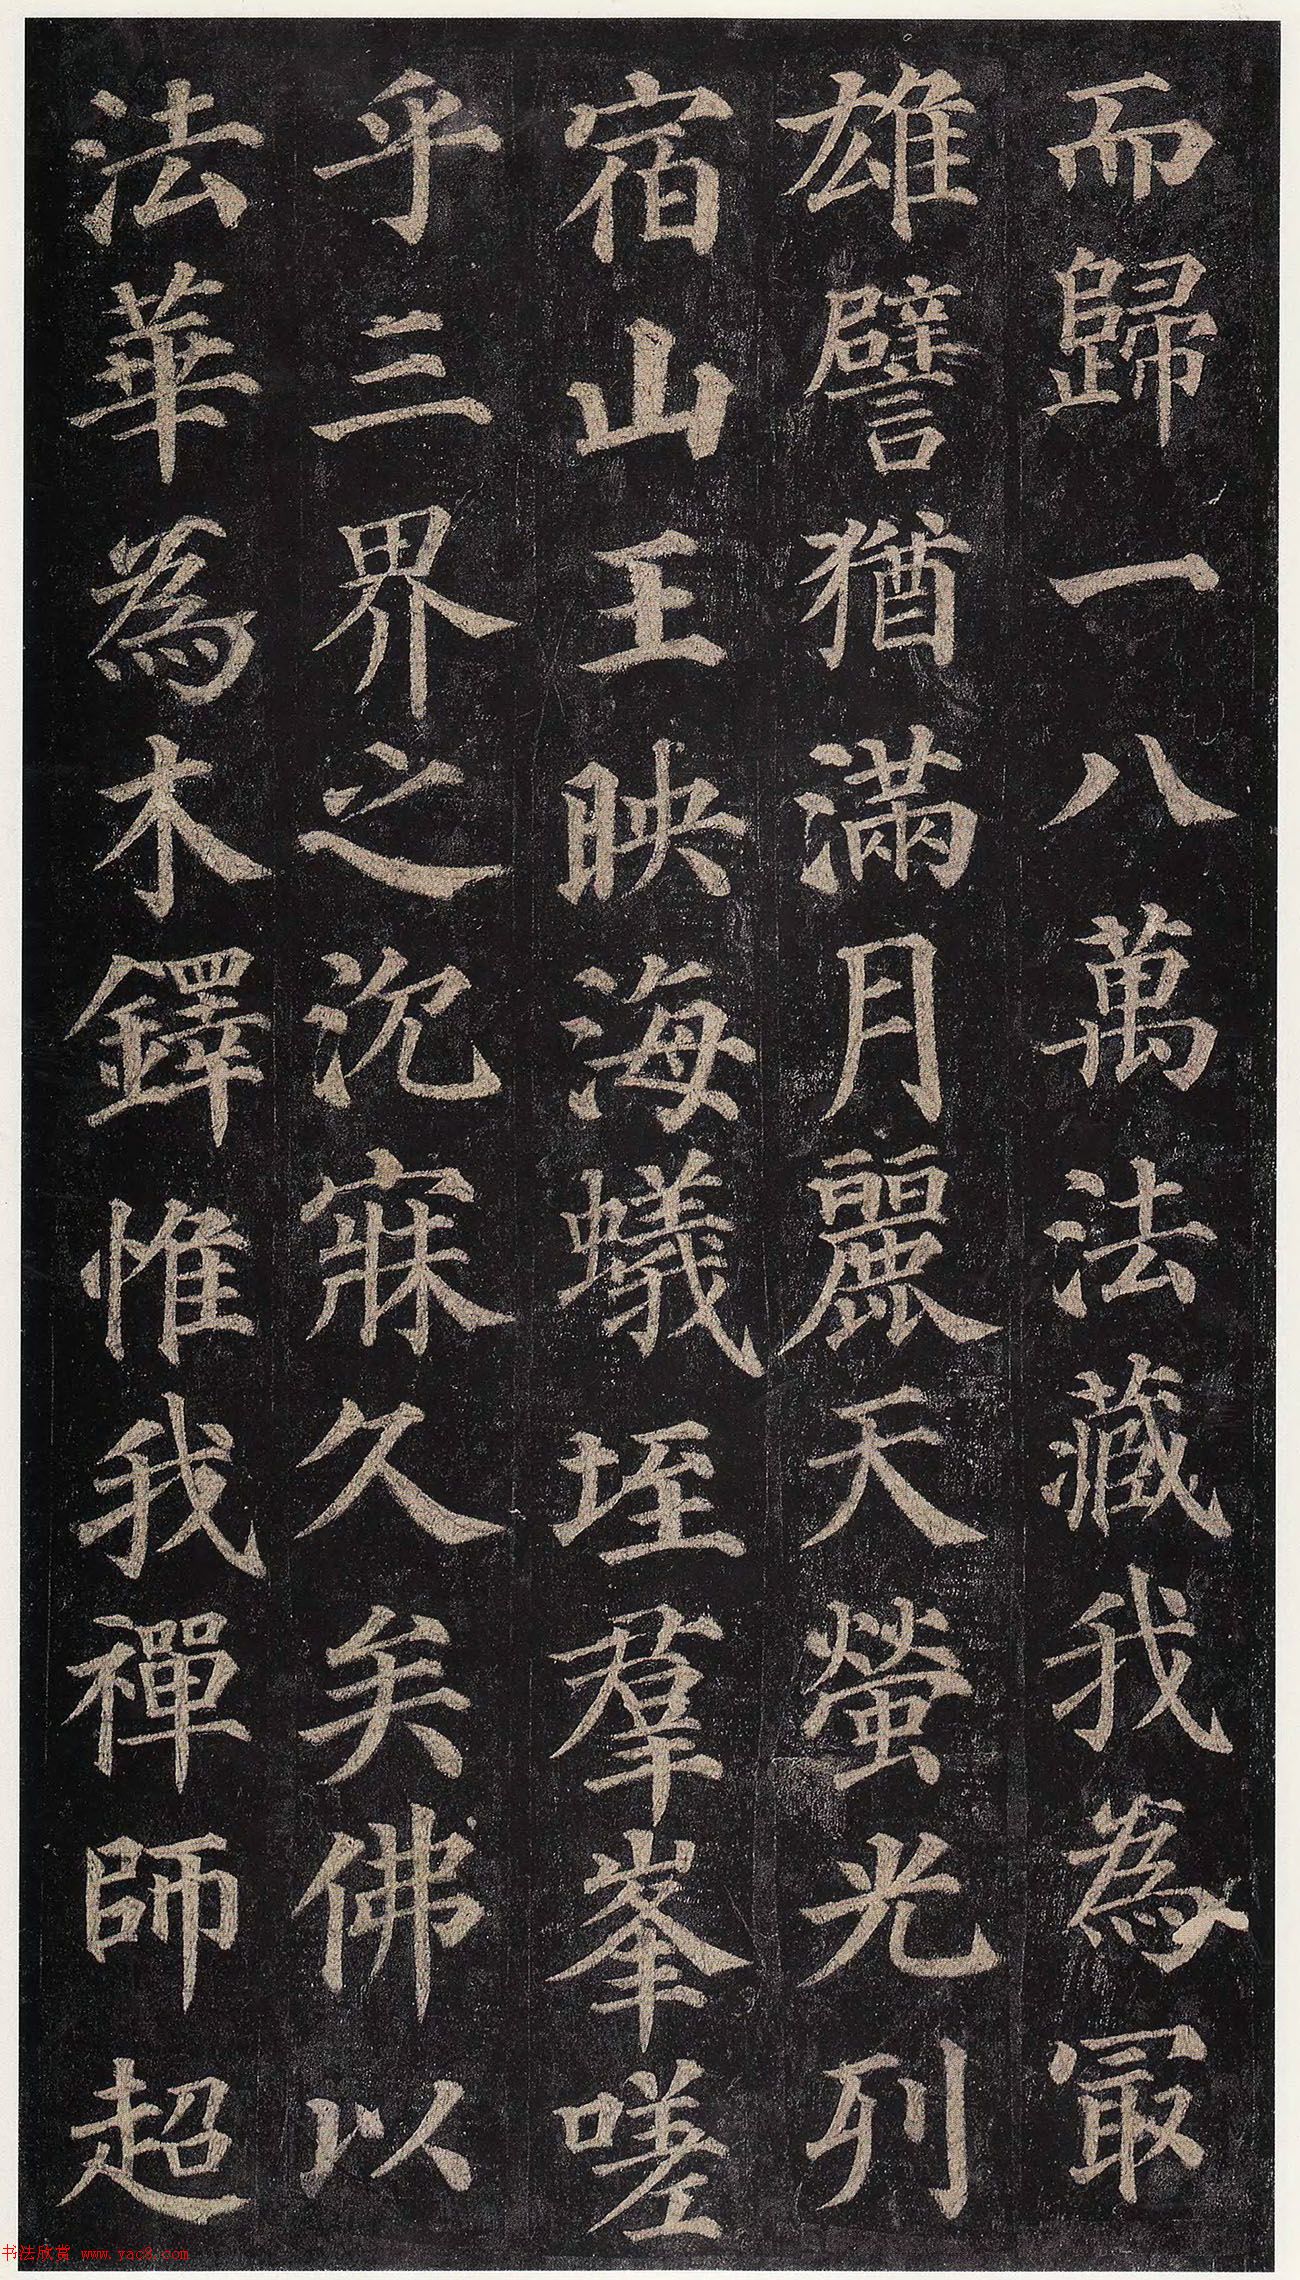 而歸一八萬法藏我為冣
雄譬猶滿月麗天螢光列
宿山王映海蟻垤羣峯嗟
乎三界之沉寐久矣佛以
法華為木鐸惟我禪師超
书法欣赏 www.yac8.com